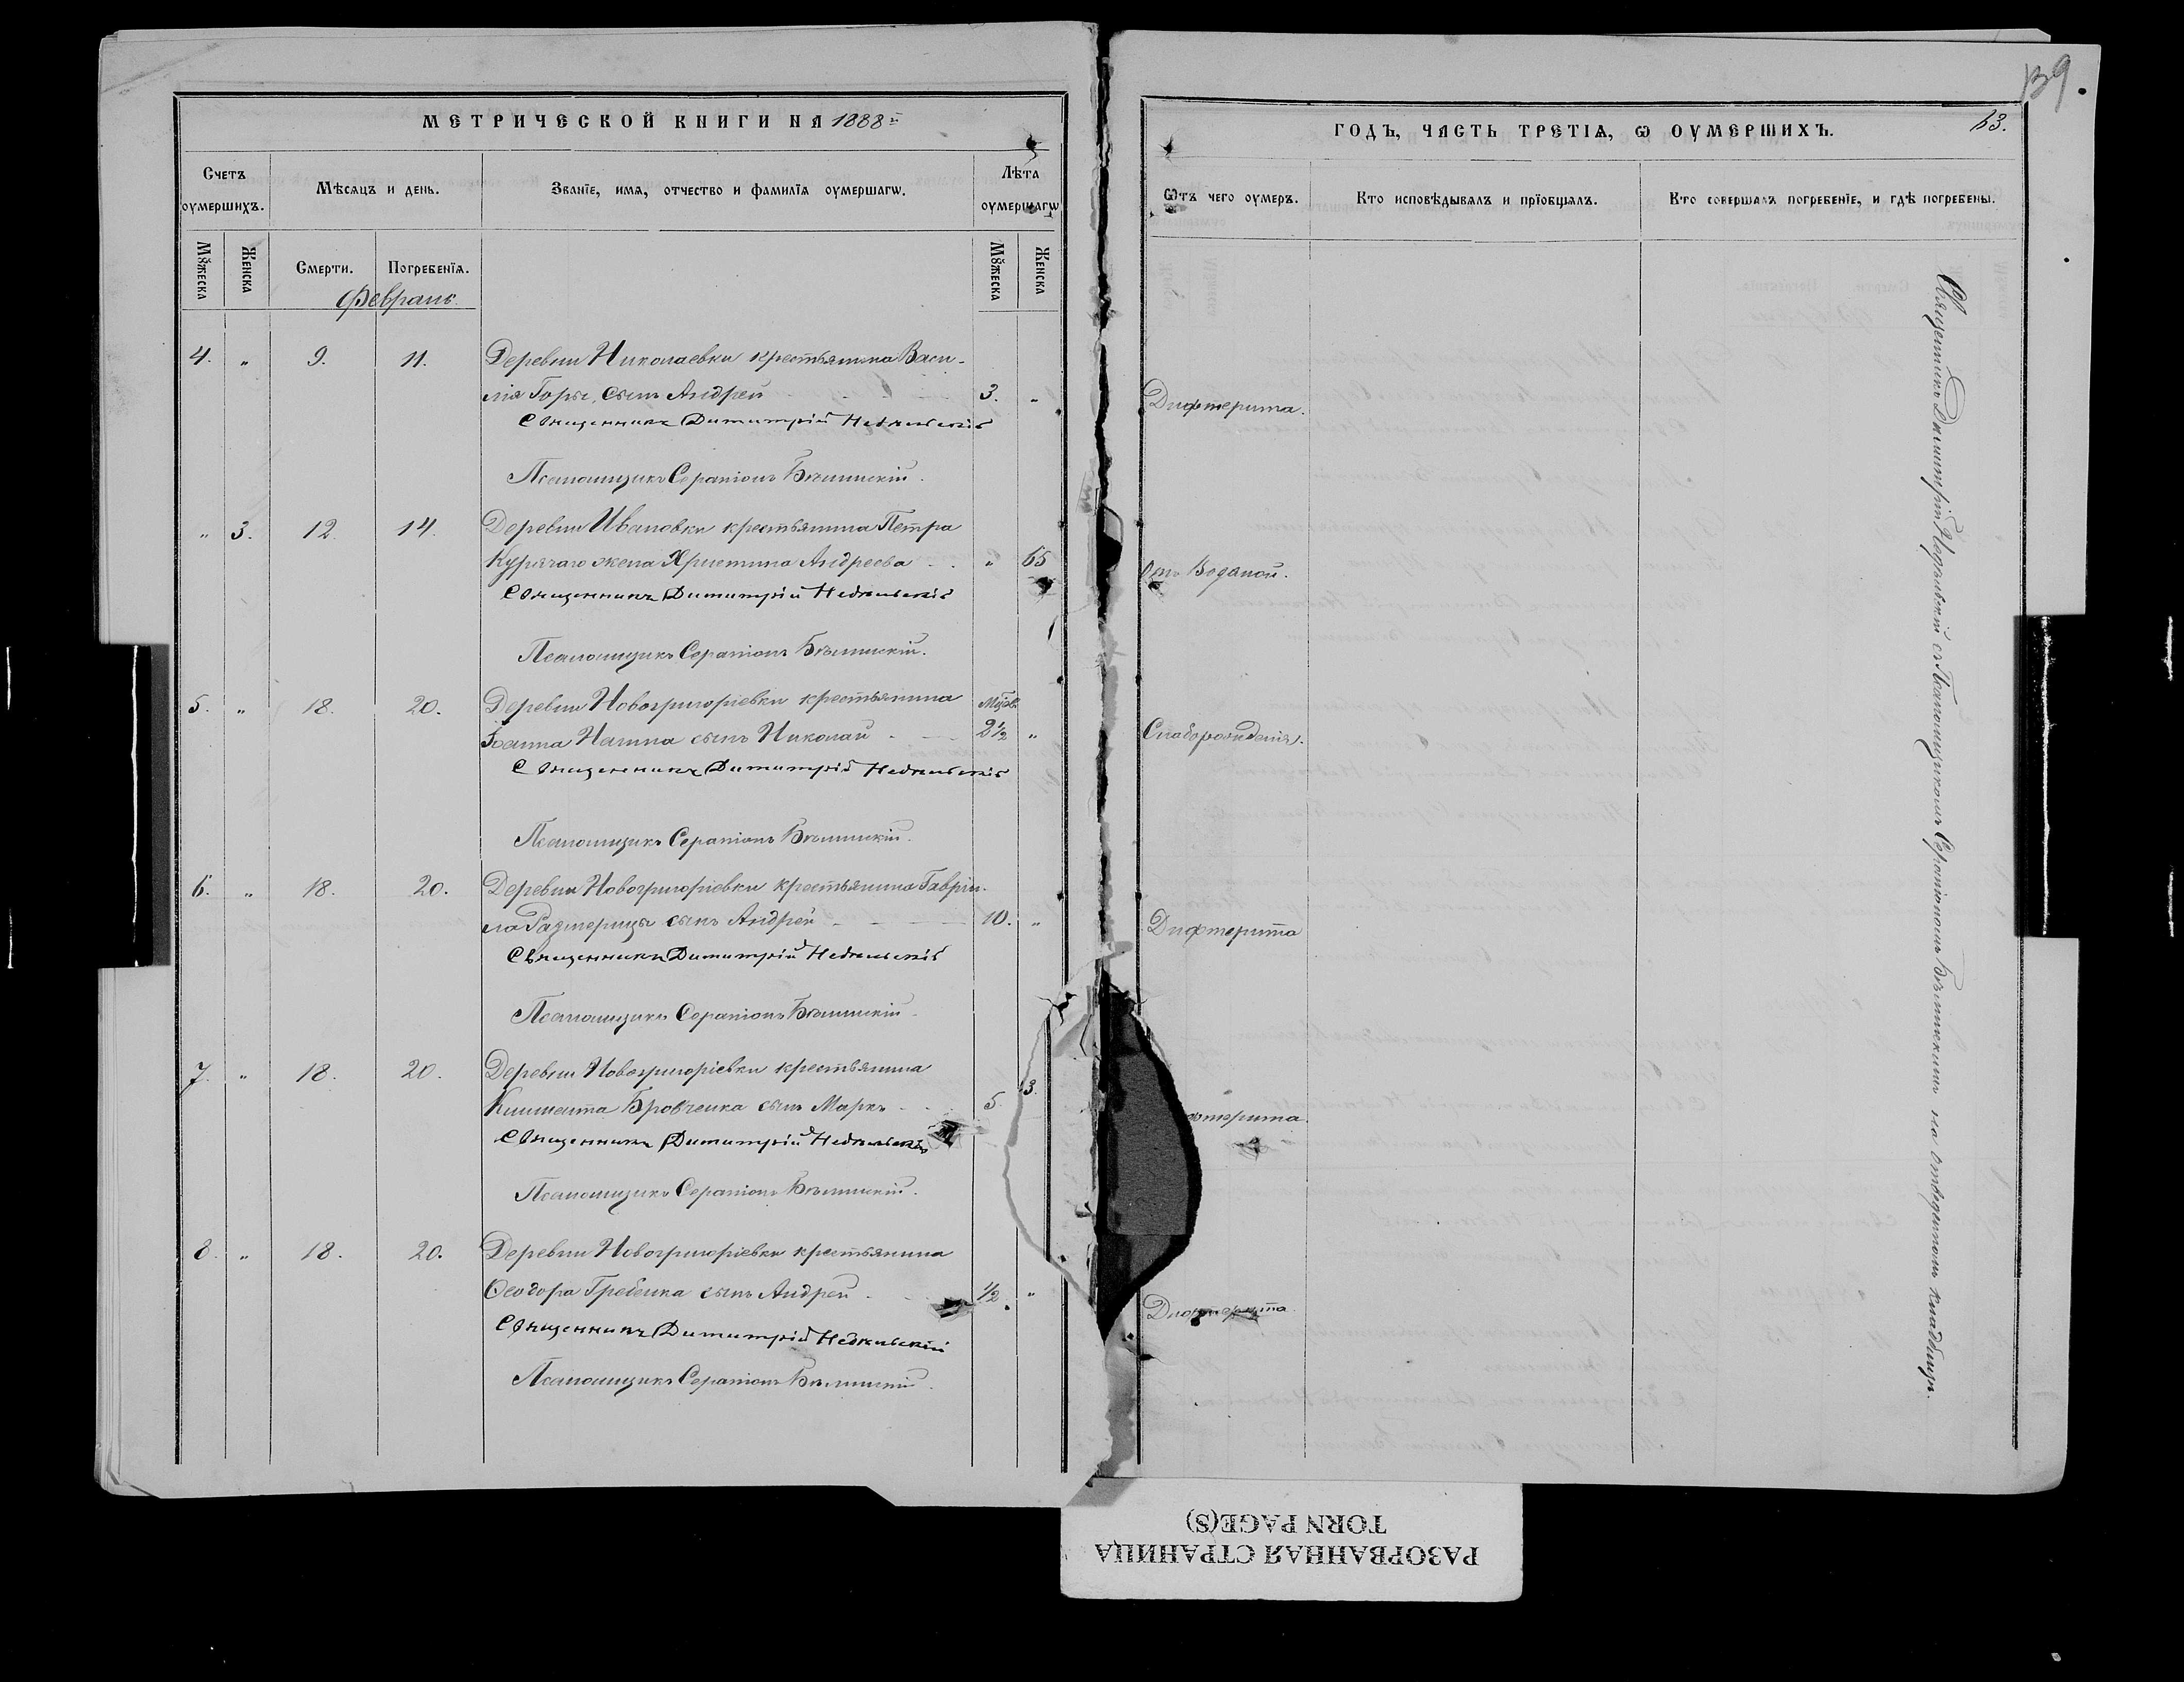 МЕТРИЧЕСКОЙ КНИГИ НА 1888й
Счетъ оумершихъ.
Мѣсяцъ и день.
Званїе, имя, отчество и фамилїѧ оумершагѡ.
Лѣта оумершагѡ
Мꙋжеска
Женска
Смерти.
Погребенїѧ.
Мꙋжеска
Женска
Февраль
4. " 9. 11. Деревни Николаевки крестьянина Васи-
лія Горы, сынъ Андрей 3. "
Священникъ Димитрій Недѣльскій
Псаломщикъ Серапіонъ Бѣлинскій.
" 3. 12. 14. Деревни Ивановки крестьянина Петра
Курячаго жена Христина Андреева " 65
Священникъ Димитрій Недѣльскій
Псаломщикъ Серапіонъ Бѣлинскій.
5. " 18. 20. Деревни Новогригоріевки крестьянина
Іоанна сынъ Николай 2½ "
Священникъ Димитрій Недѣльскій
Псаломщикъ Серапіонъ Бѣлинскій.
6. " 18. 20. Деревни Новогригоріевки крестьянина Гаврiи-
ла сынъ Андрей 10. "
Священникъ Димитрій Недѣльскій
Псаломщикъ Серапіонъ Бѣлинскій
7. " 18. 20. Деревни Новогригоріевки крестьянина
Климента Бровченка сынъ Маркъ 5.
Священникъ Димитрій Недѣльскій
Псаломщикъ Серапіонъ Бѣлинскій.
8. " 18. 20. Деревни Новогригоріевки крестьянина
Ѳеодора Гребенка сынъ Андрей ½. "
Священникъ Димитрій Недѣльскій
Псаломщикъ Серапіонъ Бѣлинскій.
139.
63.
ГОДЪ, ЧАСТЬ ТРЕТІѦ, Ѡ ОУМЕРШИХЪ.
Ѿтъ чего оумеръ.
Кто исповѣдывалъ и прїобщалъ.
Кто совершалъ погребенїе, и гдѣ погребены.
Дифтерита.
Отъ Водяной.
Слаборожденія.
Дифтерита
фтерита.
Дифтерита
Священникъ Димитрій Недѣльскій съ Псаломщикомъ Серапіономъ Бѣлинскимъ на отведенномъ кладбищѣ.
РАЗОРВАННАЯ СТРАНИЦА
TORN PAGE(S)